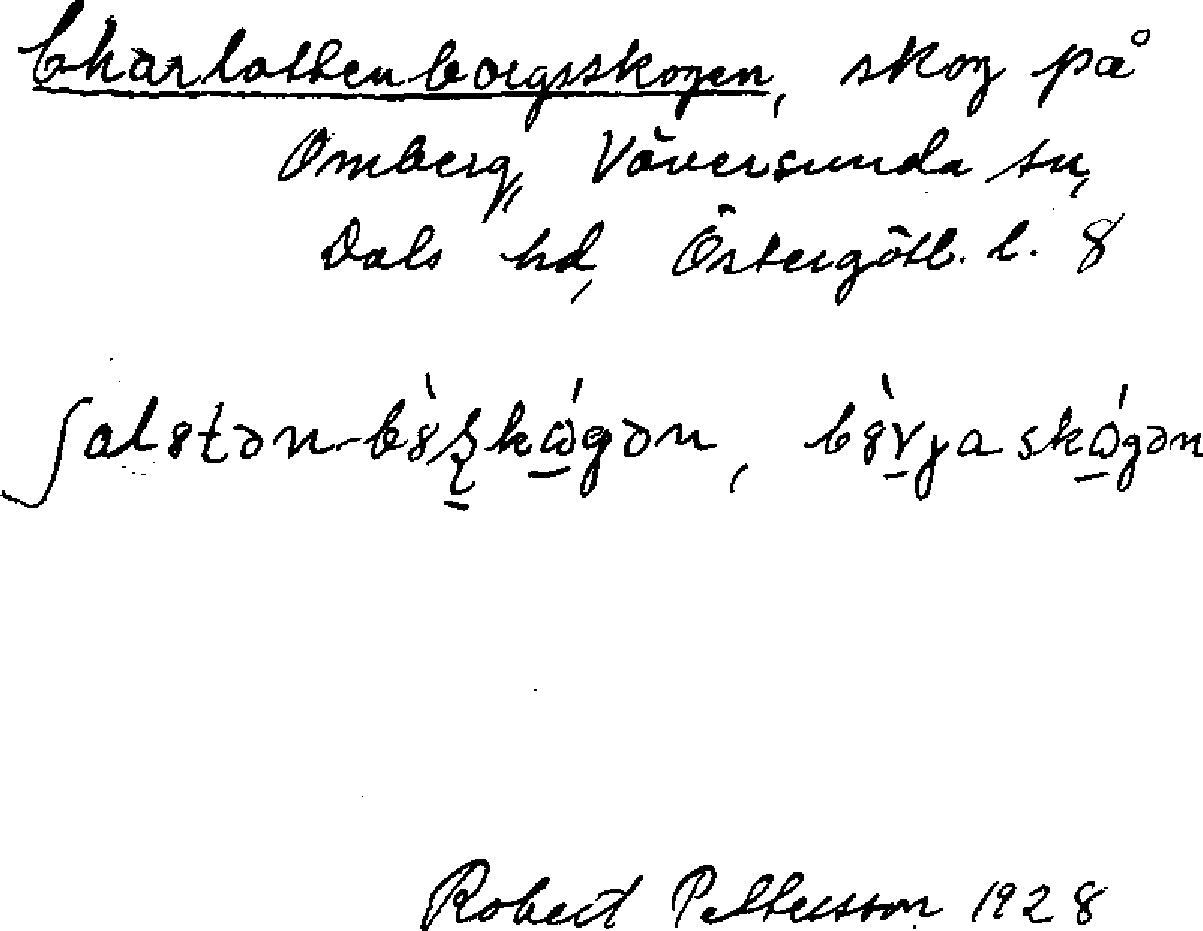 Charlottenborgsskogen, skog på
Omberg, Väversunda sn,
Dals hd, Östergötl. l. 8
ʃalȣtən-bȣ̀ʂkώgən, bȣ̀rya skώgən
Robert Pettersson 1928